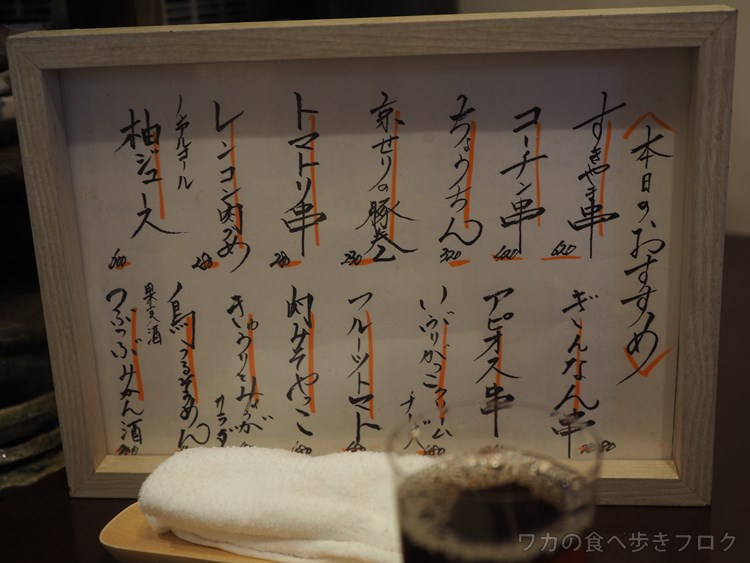 本日のおすすめ
すきやき串
コーチン串
ちょうちん
京せりの豚巻
トマトリ串
レンコン肉づめ
ノンアルコール
柚ジュース
ぎんなん串
アピオス串
いぶりがっこクリームチーズ
フルーツトマト
肉みそやっこ
きゅうりとみょうがサラダ
鳥つるそうめん
果実酒
つぶつぶみかん酒
ワカの食べ歩きブログ